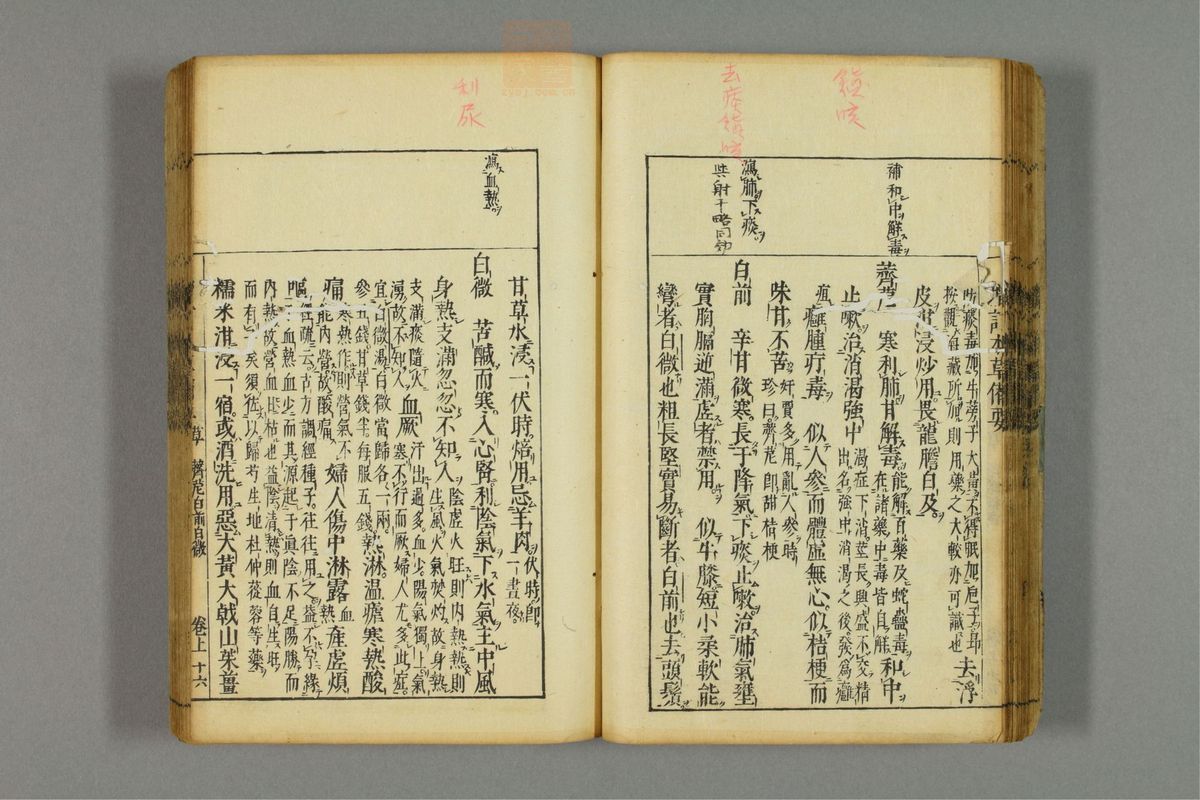 去痰鎮咳
利尿
補和中解毒
瀉肺下痰
與射干略同功
瀉血熱
皮泔浸炒用畏龍膽白及
薺苨
寒利肺甘解毒
能解百藥及蛇蠱毒
在諸藥中毒皆自解
和中
止嗽治消渴強中
渴症下消莖長興盛不交精
出名強中消渴之後發爲癰
疽
癰腫疔毒
似人參而體虛無心似桔梗而
味甘不苦
奸賈多用亂人參時
珍曰薺苨卽甜桔梗
白前
辛甘微寒長于降氣下痰止嗽治肺氣壅
實胸膈逆滿虛者禁用
似牛膝短小柔軟能
彎者白微也粗長堅實易斷者白前也去頭鬚
甘草水浸一伏時焙用忌羊肉
伏時卽
一晝夜
白微
苦鹹而寒入心腎利陰氣下水氣主中風
身熱支滿忽忽不知人
陰虛火旺則內熱熱則
生風火氣焚灼故身熱
支滿痰隨火
湧故不知人
血厥
汗出過多血少陽氣獨上氣
塞不行而厥婦人尤多此症
宜白微湯白微當歸各一兩
參五錢甘草錢半每服五錢
熱淋溫瘧寒熱酸
痛
寒熱作則營氣不
能內營故酸痛
婦人傷中淋露
血熱
產虛煩
嘔
經疏云古方調經種子往往用之蓋不孕緣
于血熱血少而其源起于真陰不足陽勝而
內熱故營血日枯也益陰清熱則血自生旺
而有子矣須佐以歸芍生地杜仲蓯蓉等藥
糯米泔浸一宿或酒洗用惡大黃大戟山茱薑
草
薺苨白前白微
卷上
十六